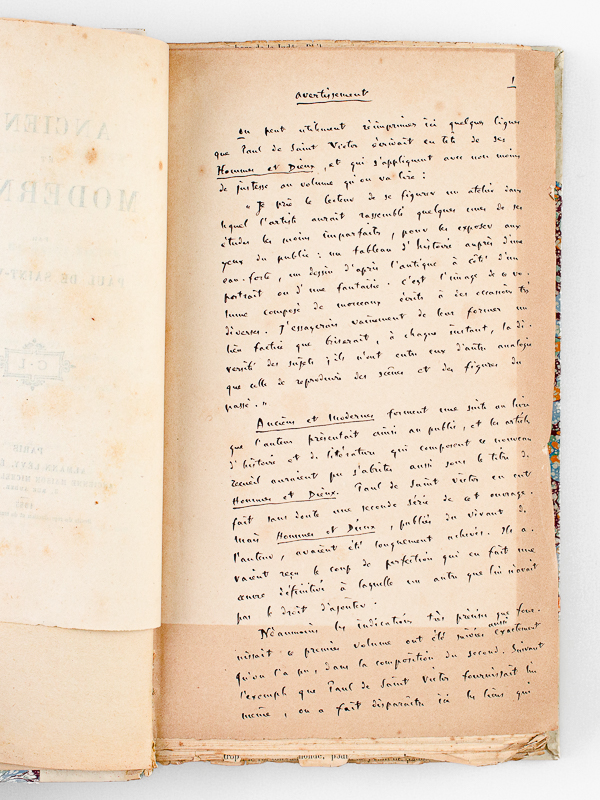 ANCIEN
MODERN
PAUL DE SAINT-V
PARIS
1
Avertissement
On peut utilement réimprimer ici quelques lignes
que Paul de Saint Victor écrivait en tête de ses
Hommes et Dieux, et qui s'appliquent avec non moins
de justesse au volume qu'on va lire :
« Je prie le lecteur de se figurer un atelier dans
lequel l'artiste aurait rassemblé quelques unes de ses
études les moins imparfaites, pour les exposer aux
yeux du public : un tableau d'histoire auprès d'une
eau-forte, un dessin d'après l'antique à côté d'un
portrait ou d'une fantaisie. C'est l'image de ce vo-
lume composé de morceaux écrits à des occasions très
diverses. J'essayerais vainement de leur former un
lien factice que briserait, à chaque instant, la di-
versité des sujets ; ils n'ont entre eux d'autre analogie
que celle de reproduire des scènes et des figures du
passé. »
Anciens et Modernes forment une suite au livre
que l'auteur présentait ainsi au public, et les articles
d'histoire et de littérature qui composent ce nouveau
recueil auraient pu s'abriter aussi sous le titre de
Hommes et Dieux. Paul de Saint Victor en eut
fait sans doute une seconde série de cet ouvrage.
Mais Hommes et Dieux, publiés du vivant de
l'auteur, avaient été longuement achevés. Ils a-
vaient reçu le coup de perfection qui en fait une
œuvre définitive à laquelle un autre que lui n'avait
pas le droit d'ajouter.
Néanmoins les indications très précises que four-
nissait ce premier volume ont été suivies aussi exactement
qu'on l'a pu, dans la composition du second. Suivant
l'exemple que Paul de Saint Victor fournissait lui
même, on a fait disparaître ici les liens qui